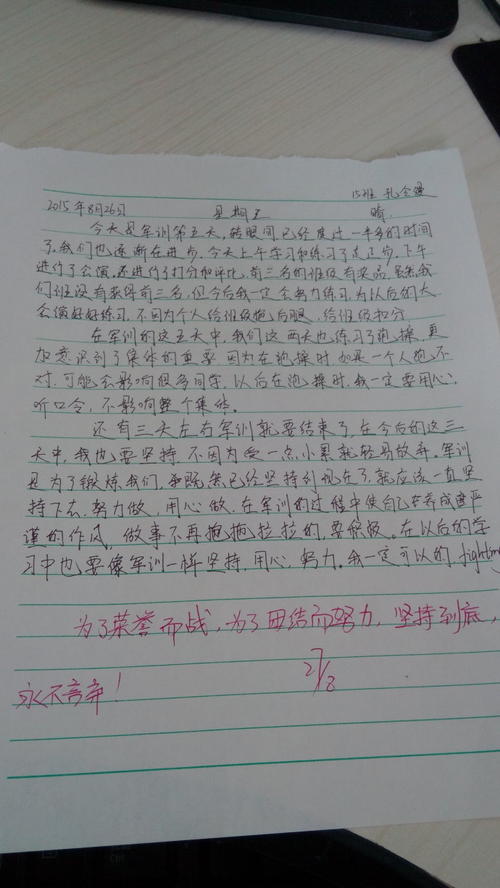 15班 孔令
2015年8月26日 星期五 晴
今天是军训第五天,转眼间,已经度过一半多的时间
了,我们也逐渐在进步,今天上午学习和练习了正步,下午
进行了会演,还进行了打分和评比,前三名的班级有奖品,虽然我
们班没有获得前三名,但今后我一定会努力练习,为以后的大
会演好好练习,不因为个人给班级拖后腿,给班级扣分.
在军训的这五天中,我们这两天也练习了跑操,更
加意识到了集体的重要,因为在跑操时,如果一个人跑不
对,可能会影响很多同学,以后在跑操时,我一定要用心,
听口令,不影响整个集体.
还有三天左右军训就要结束了,在今后的这三
天中,我也要坚持,不因为受一点小累就轻易放弃,军训
是为了锻炼我们,既然已经坚持到现在了,就应该一直坚
持下去,努力做,用心做,在军训的过程中使自己养成严
谨的作风,做事不再拖拖拉拉的,要积极。在以后的学
习中也要像军训一样坚持,用心,努力,我一定可以的,fighting
为了荣誉而战,为了团结而努力,坚持到底,
永不言弃! 27/8